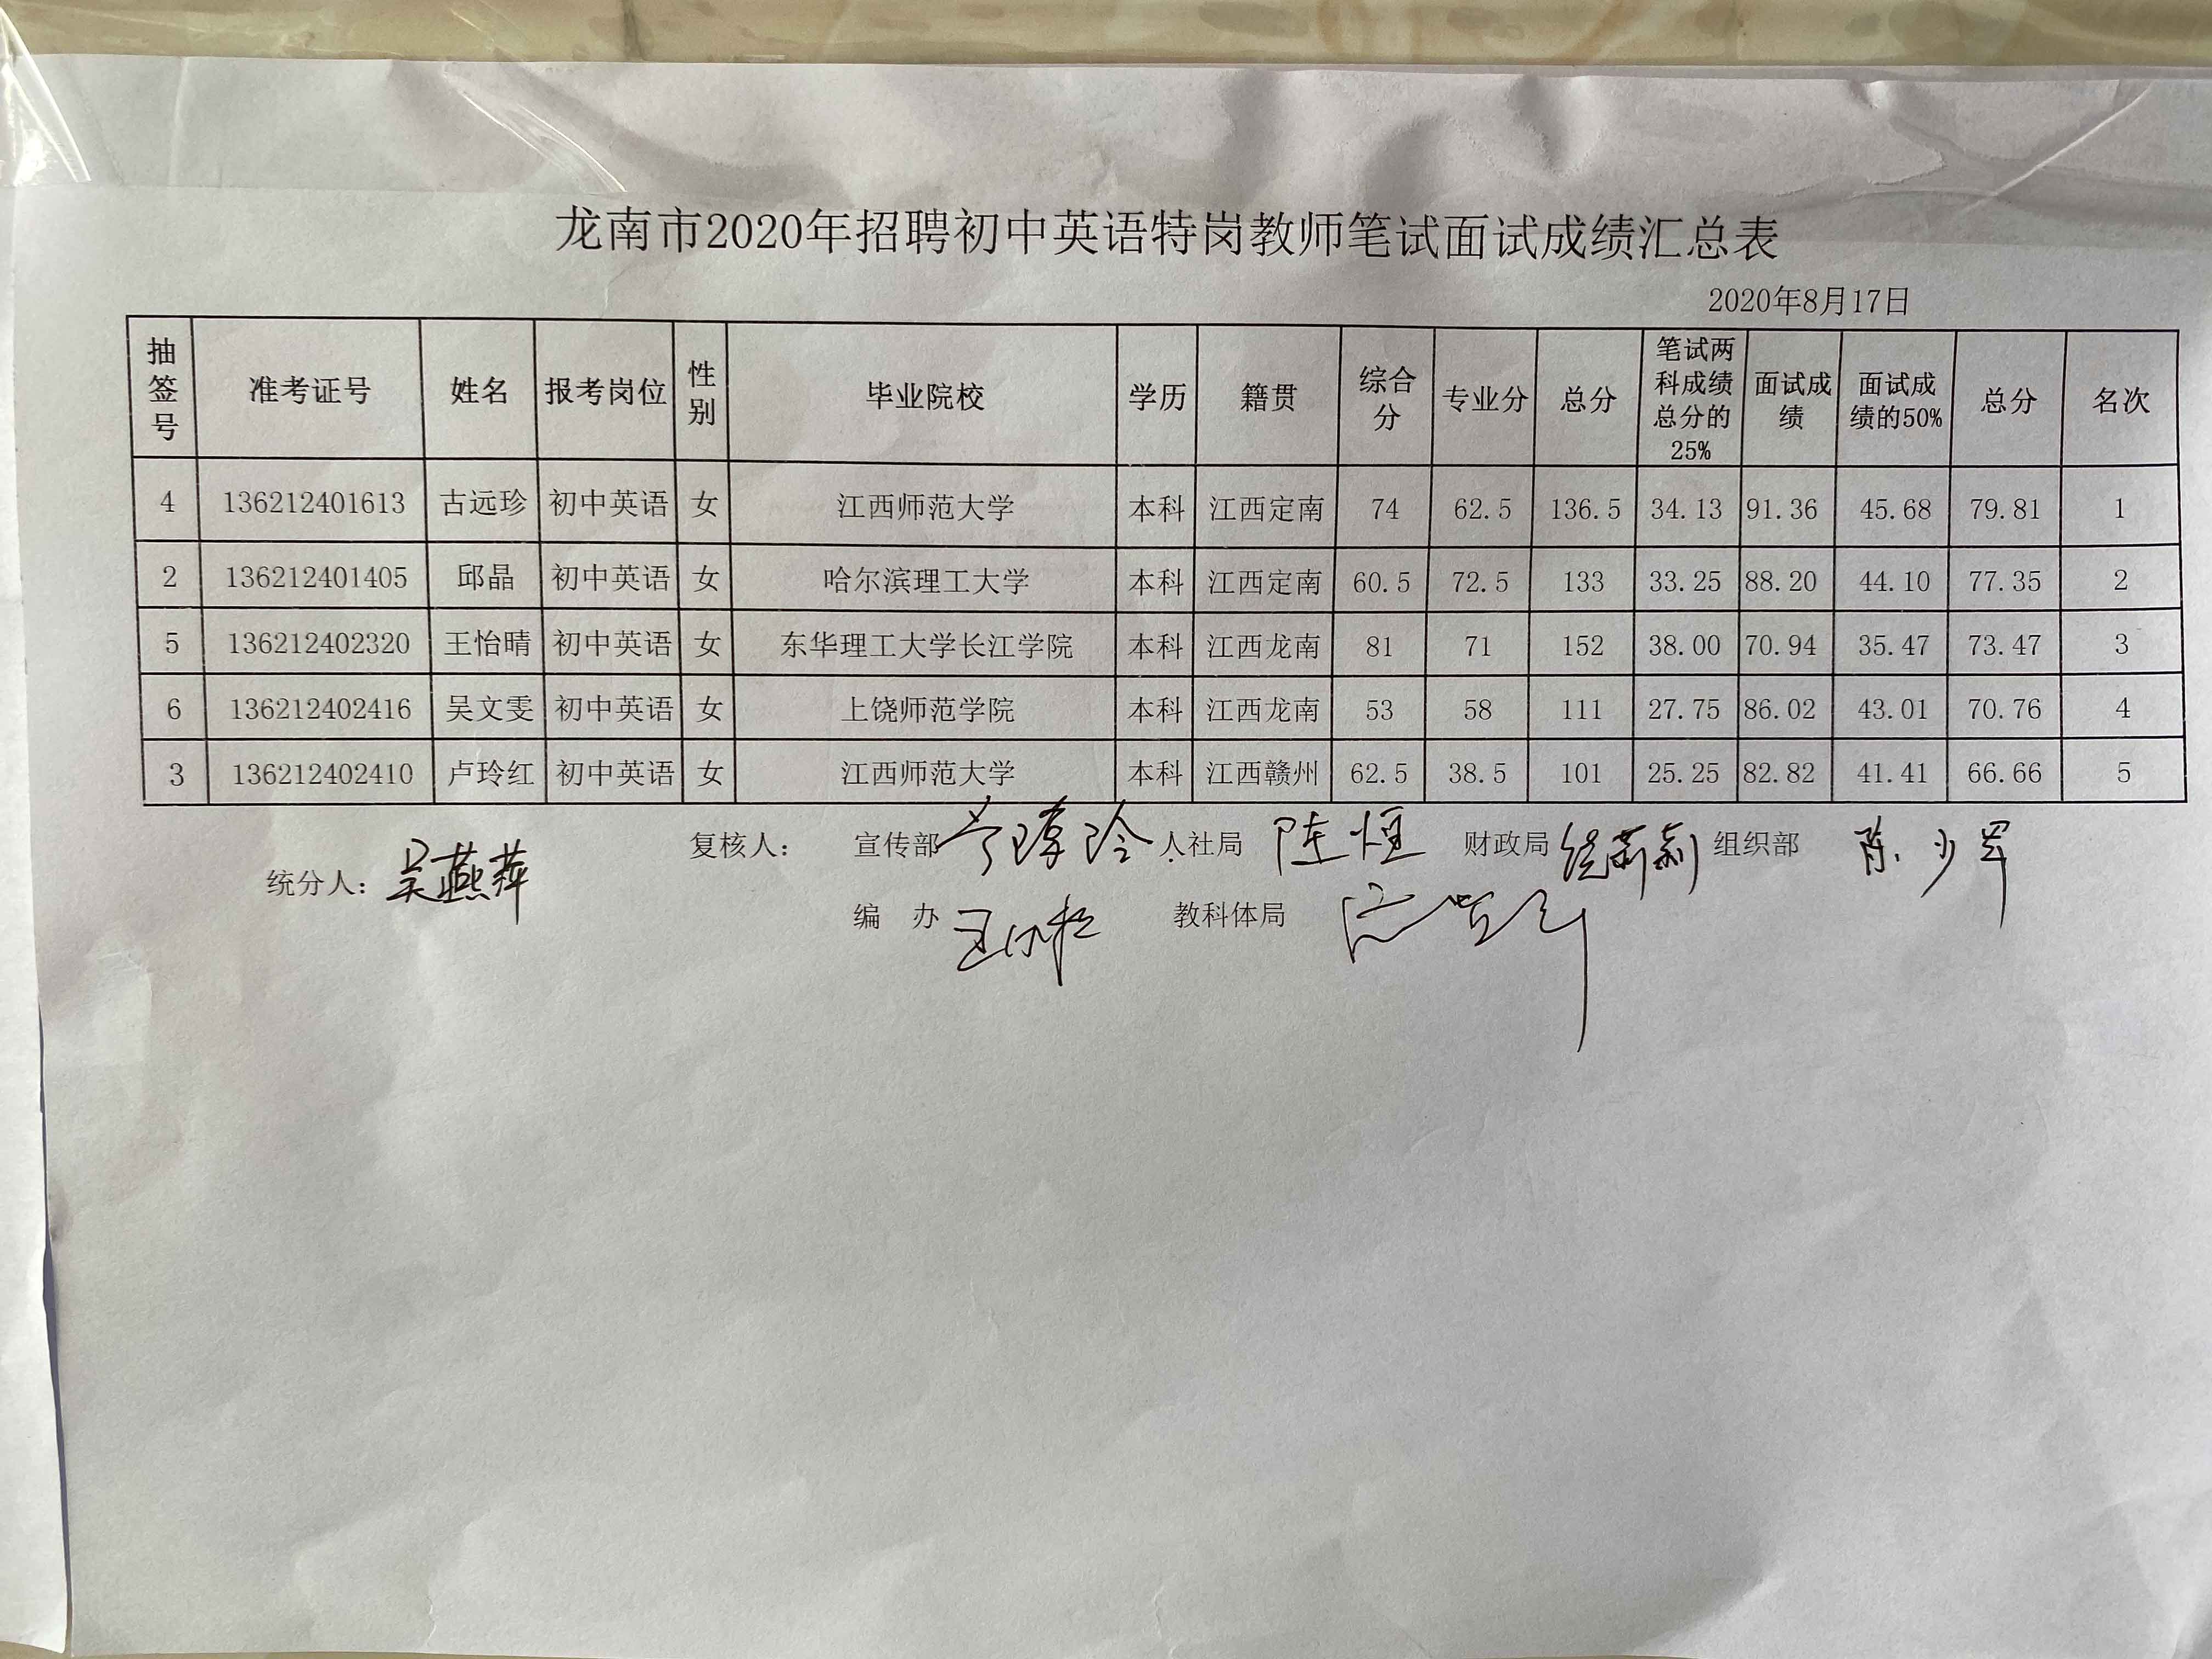 龙南市2020年招聘初中英语特岗教师笔试面试成绩汇总表
2020年8月17日
抽签号 准考证号 姓名 报考岗位 性别 毕业院校 学历 籍贯 综合分 专业分 总分 笔试两科成绩总分的25% 面试成绩 面试成绩的50% 总分 名次
4 136212401613 古远珍 初中英语 女 江西师范大学 本科 江西定南 74 62.5 136.5 34.13 91.36 45.68 79.81 1
2 136212401405 邱晶 初中英语 女 哈尔滨理工大学 本科 江西定南 60.5 72.5 133 33.25 88.20 44.10 77.35 2
5 136212402320 王怡晴 初中英语 女 东华理工大学长江学院 本科 江西龙南 81 71 152 38.00 70.94 35.47 73.47 3
6 136212402416 吴文雯 初中英语 女 上饶师范学院 本科 江西龙南 53 58 111 27.75 86.02 43.01 70.76 4
3 136212402410 卢玲红 初中英语 女 江西师范大学 本科 江西赣州 62.5 38.5 101 25.25 82.82 41.41 66.66 5
复核人： 宣传部 人社局 陈恒 财政局 组织部 陈少军
统分人：吴燕萍
编 办 教科体局